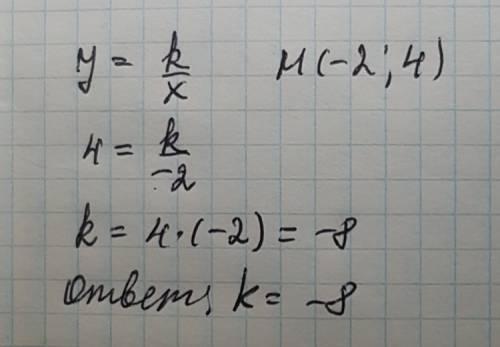 y = k/x M(-2; 4)
4 = k/-2
k = 4·(-2) = -8
Ответ, k = -8